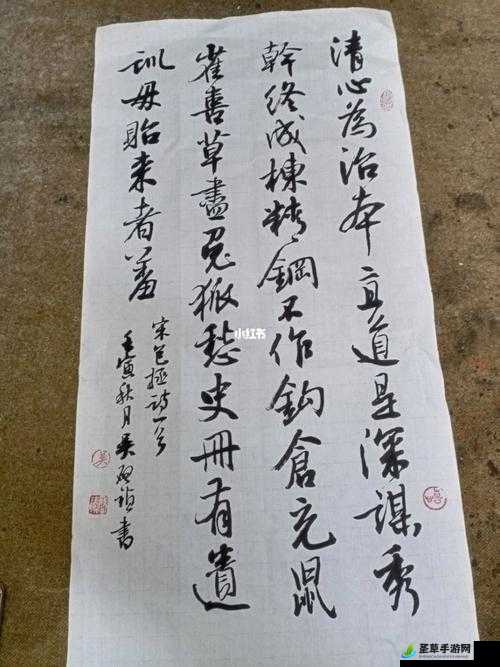 清心為治本直道是深謀秀
幹終成棟精鋼不作鈎倉充鼠
雀喜草盡兔狐愁史冊有遺
訓毋貽来者羞
宋包拯詩一首
壬寅秋月吳書
小红书
圣草手游网